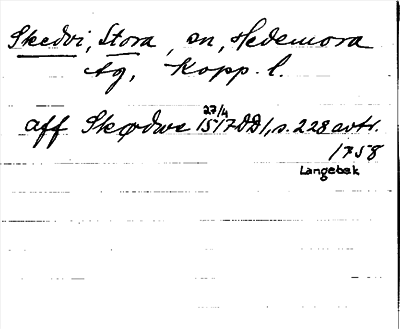 Skedvi, Stora, sn, Hedemora
tg, Kopp. l.
27/4
aff Skødwe 1517 DD 1, s. 228 avtr.
1758
Langebek